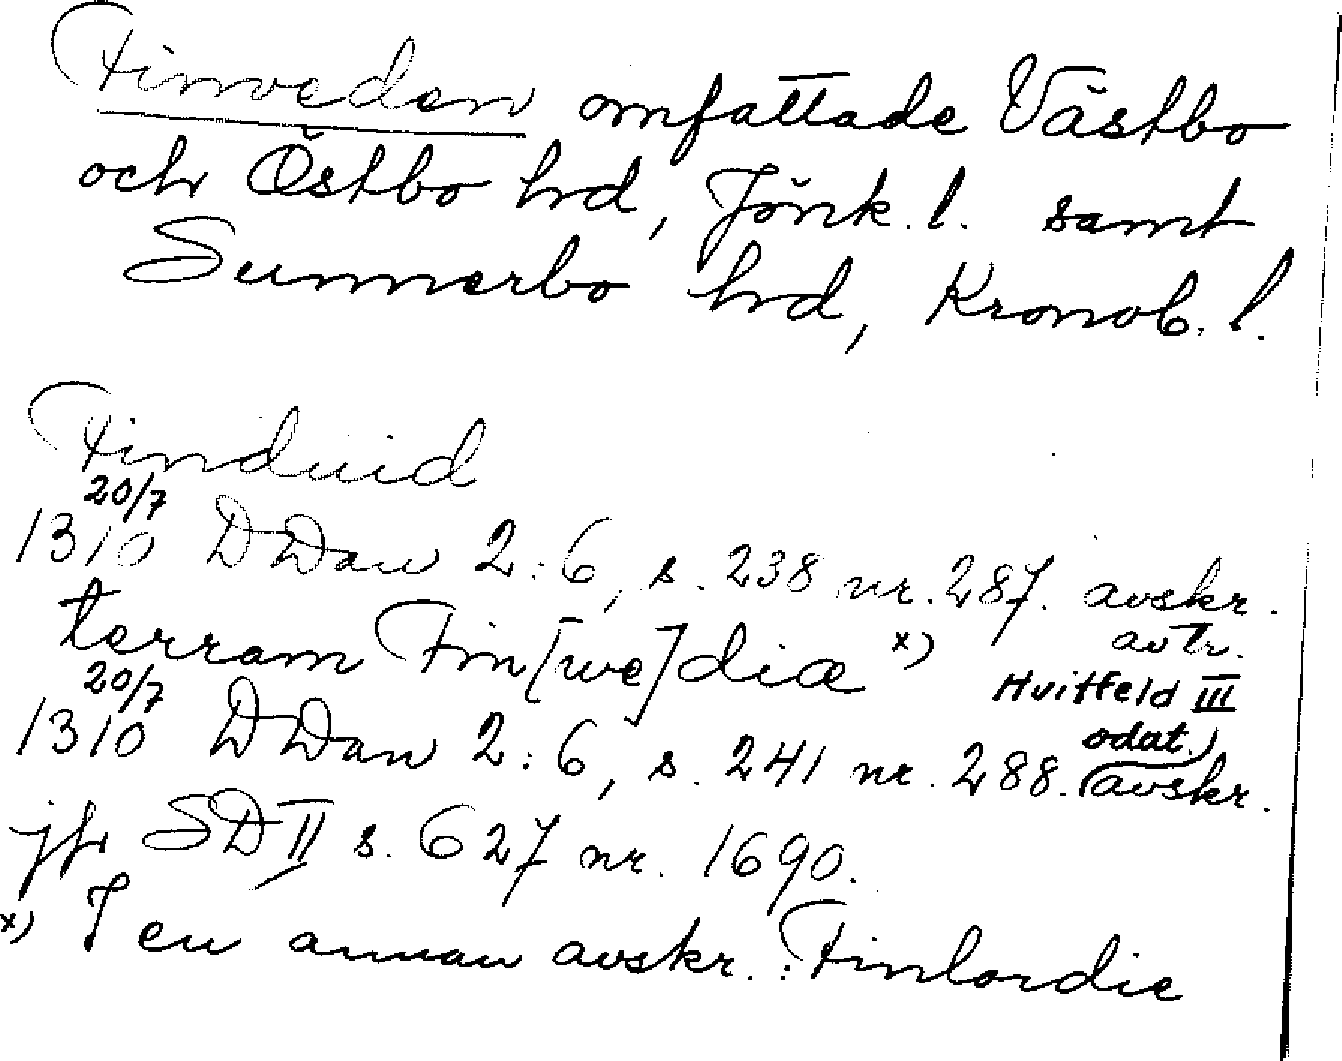 Finveden omfattade Västbo
och Östbo hrd, Jönk. l. samt
Sunnerbo hrd, Kronob. l.
Finduid
20/7
1310 DDan 2:6, s. 238 nr. 287. avskr.
terram Fin[we]diæ x) av tr.
Hvitfeld III
20/7
odat.)
1310 DDan 2:6, s. 241 nr. 288. (avskr.
jfr SD II s. 627 nr. 1690.
x) I en annan avskr.: Finlandie